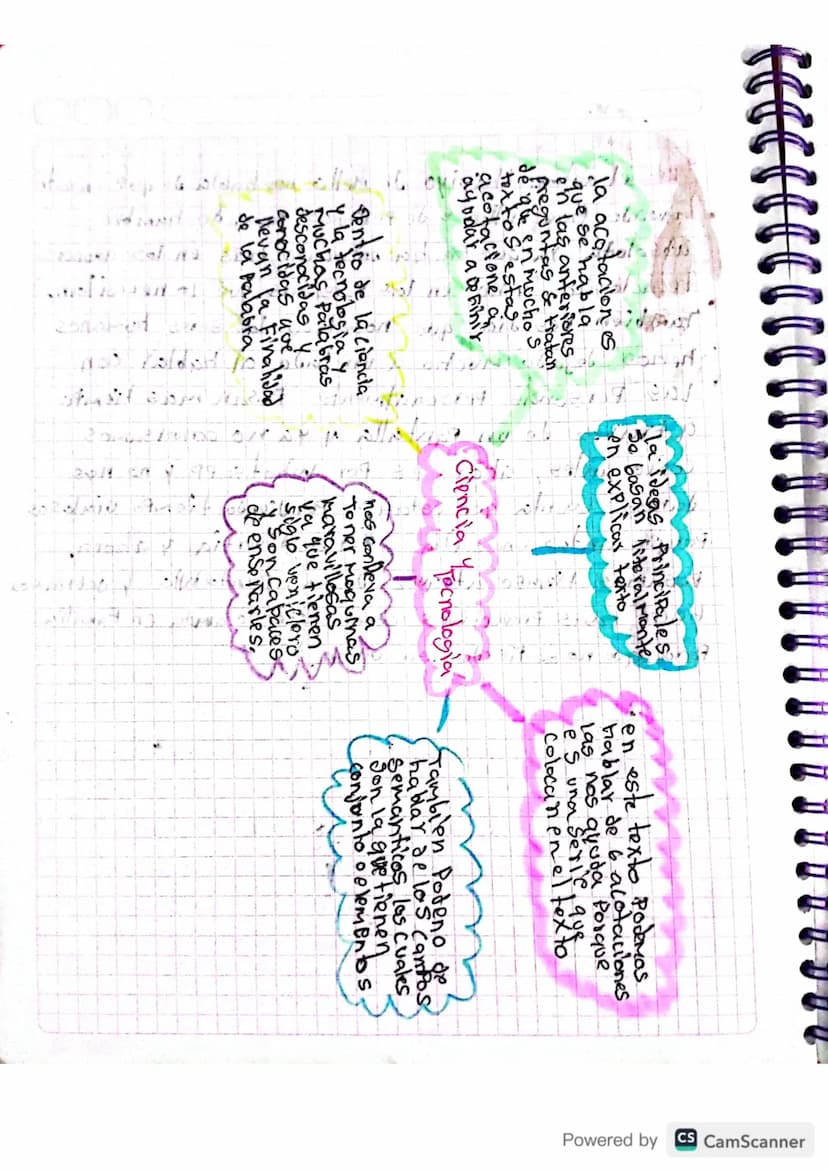 la acotaciones
que se habla
en las anteriores
preguntas & tratan
de que en muchos
textos estas
acotacione an
ayudar a definir
la ideas Principales
se basan literalmente
en explicar texto
en este texto Podemos
hablar de 6 acotaciones
las nos ayuda Porque
es una serie que
colocan en el texto
Ciencia y
Tecnologia
Dentro de la ciencia
y la tecnologia y
muchas Palabras
desconocidas y
conocidas que
llevan la Finalidad
de la Palabra
nos conlleva a
toner maquinas
maravillosas
ya que tienen
siglo
y son capaces
de enseñarles.
Tambien Podeno de
hablar de los campos
semanticos los cuales
son la que tienen
conjunto o elementos
Powered by CS CamScanner